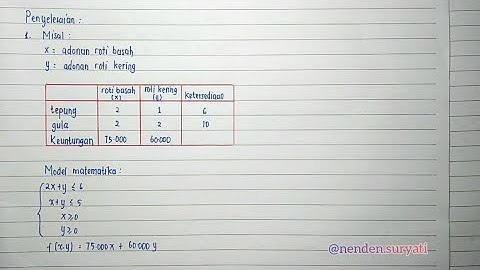 Penyelesaian :
1. Misal :
x = adonan roti basah
y = adonan roti kering
roti basah (x) roti kering (y) Ketersediaan
tepung 2 1 6
gula 2 2 10
Keuntungan 75.000 60.000
Model matematika :
2x+y ≤ 6
x+y ≤ 5
x ≥ 0
y ≥ 0
f(x.y) = 75.000x + 60.000 y
@nenden.suryati